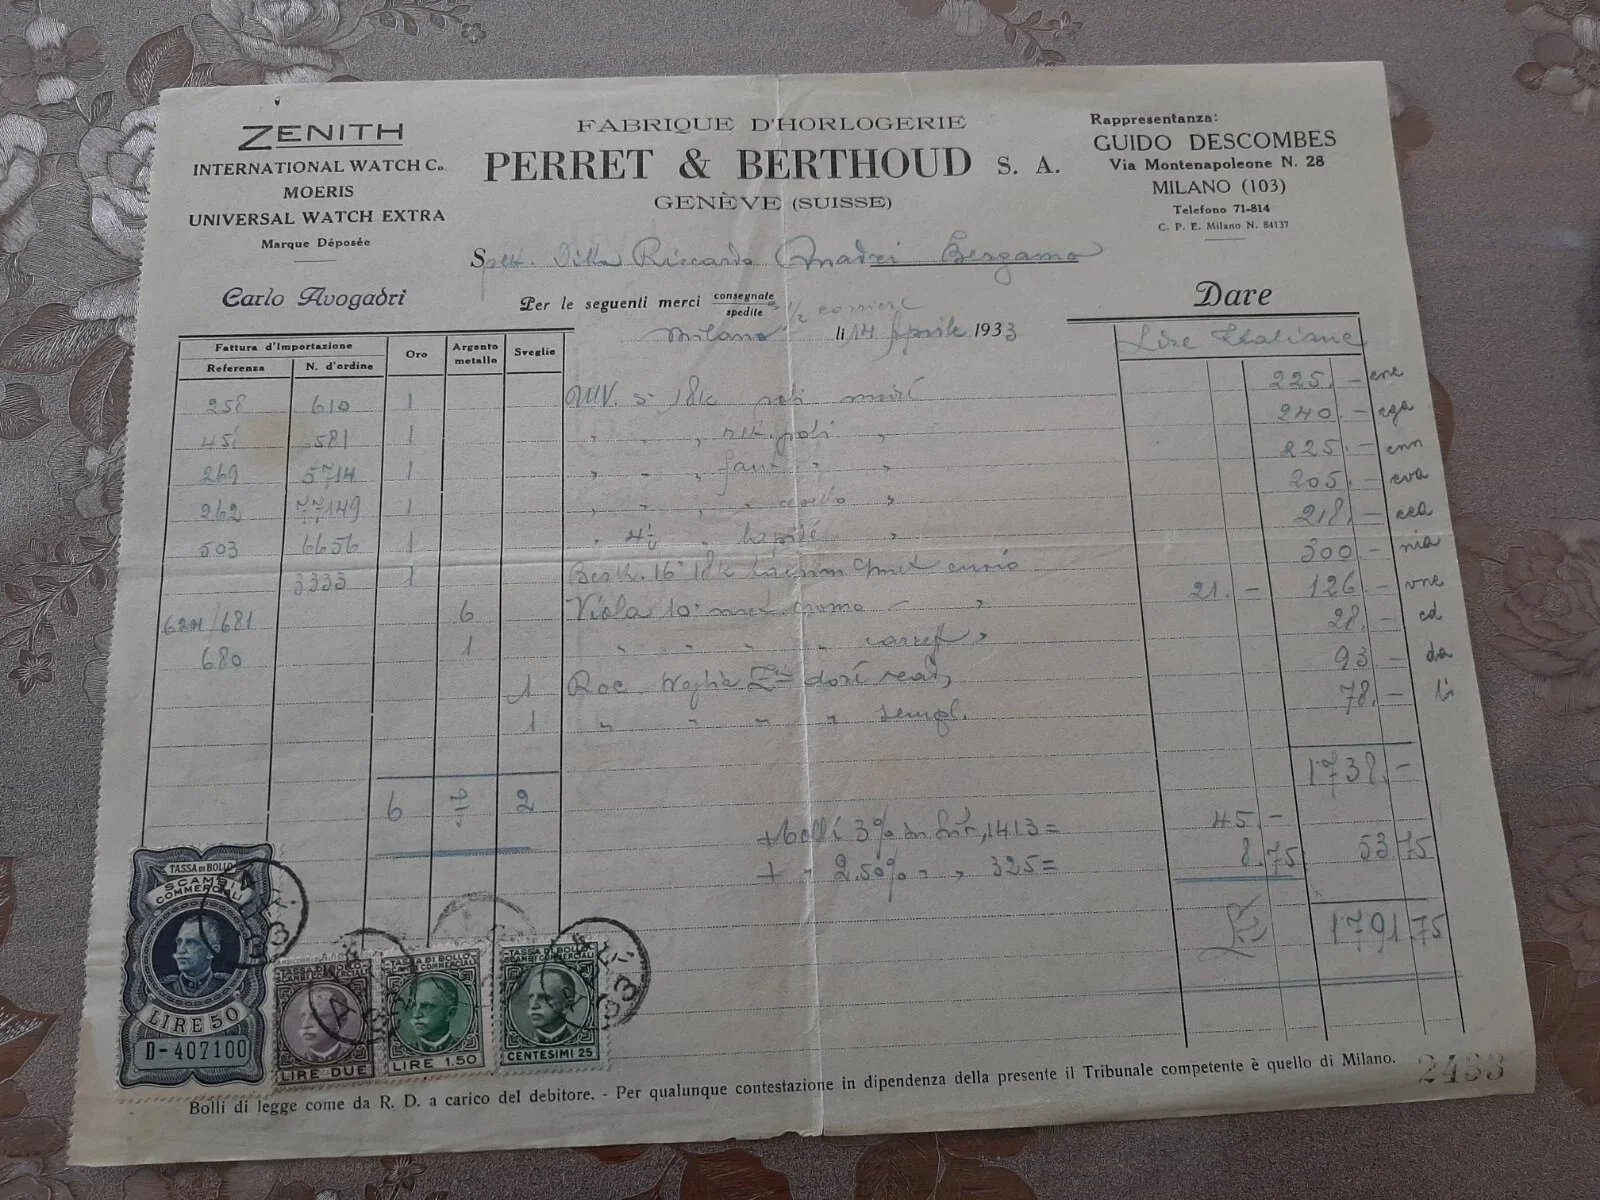 ZENITH
INTERNATIONAL WATCH Co.
MOERIS
UNIVERSAL WATCH EXTRA
Marque Déposée
FABRIQUE D'HORLOGERIE
PERRET & BERTHOUD S. A.
GENÈVE (SUISSE)
Rappresentanza:
GUIDO DESCOMBES
Via Montenapoleone N. 28
MILANO (103)
Telefono 71-814
C. P. E. Milano N. 84137
Spett. Ditta Riccardo Bergamo
Carlo Avogadri
Per le seguenti merci consegnate spedite ½ corriere
Dare
Milano li 14 Aprile 1933
Lire Italiane
Fattura d'Importazione
Referenza N. d'ordine Oro Argento metallo Sveglie
258 610 1 18k 225.- ene
451 581 1 " " " " 240.- ega
269 5714 1 " " " " " 225.- enn
262 77149 1 " " " " " 205.- eva
503 6656 1 " " " 218.- cea
3333 1 16" 18k 300.- nia
/681 6 Viola 10" cromo " 21.- 126.- vne
680 1 " " " " " 28.- ed
1 93.- da
1 " " " " sempl. 78.- li
1738.-
6 7 2
+ bolli 3% su Lit. 1413= 45.-
+ " 2.50% " " 325= 8.75 53.75
Lit 1791.75
TASSA DI BOLLO
SCAMBI COMMERCIALI
LIRE 50
D-407100
TASSA DI BOLLO
SCAMBI COMMERCIALI
LIRE DUE
TASSA DI BOLLO
SCAMBI COMMERCIALI
LIRE 1.50
TASSA DI BOLLO
SCAMBI COMMERCIALI
CENTESIMI 25
Bolli di legge come da R. D. a carico del debitore. - Per qualunque contestazione in dipendenza della presente il Tribunale competente è quello di Milano.
2483